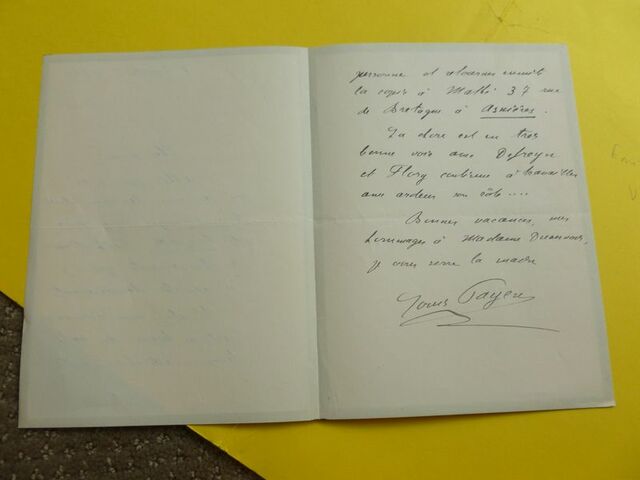 personne et adresser ensuite
la copie à Mathé 37 rue
de Bretagne à Asnières.
La chose est en très
bonne voie avec Defreyn
et Flory continue à travailler
avec ardeur son rôle....
Bonnes vacances, mes
hommages à Madame
je vous serre la main
Louis Payen